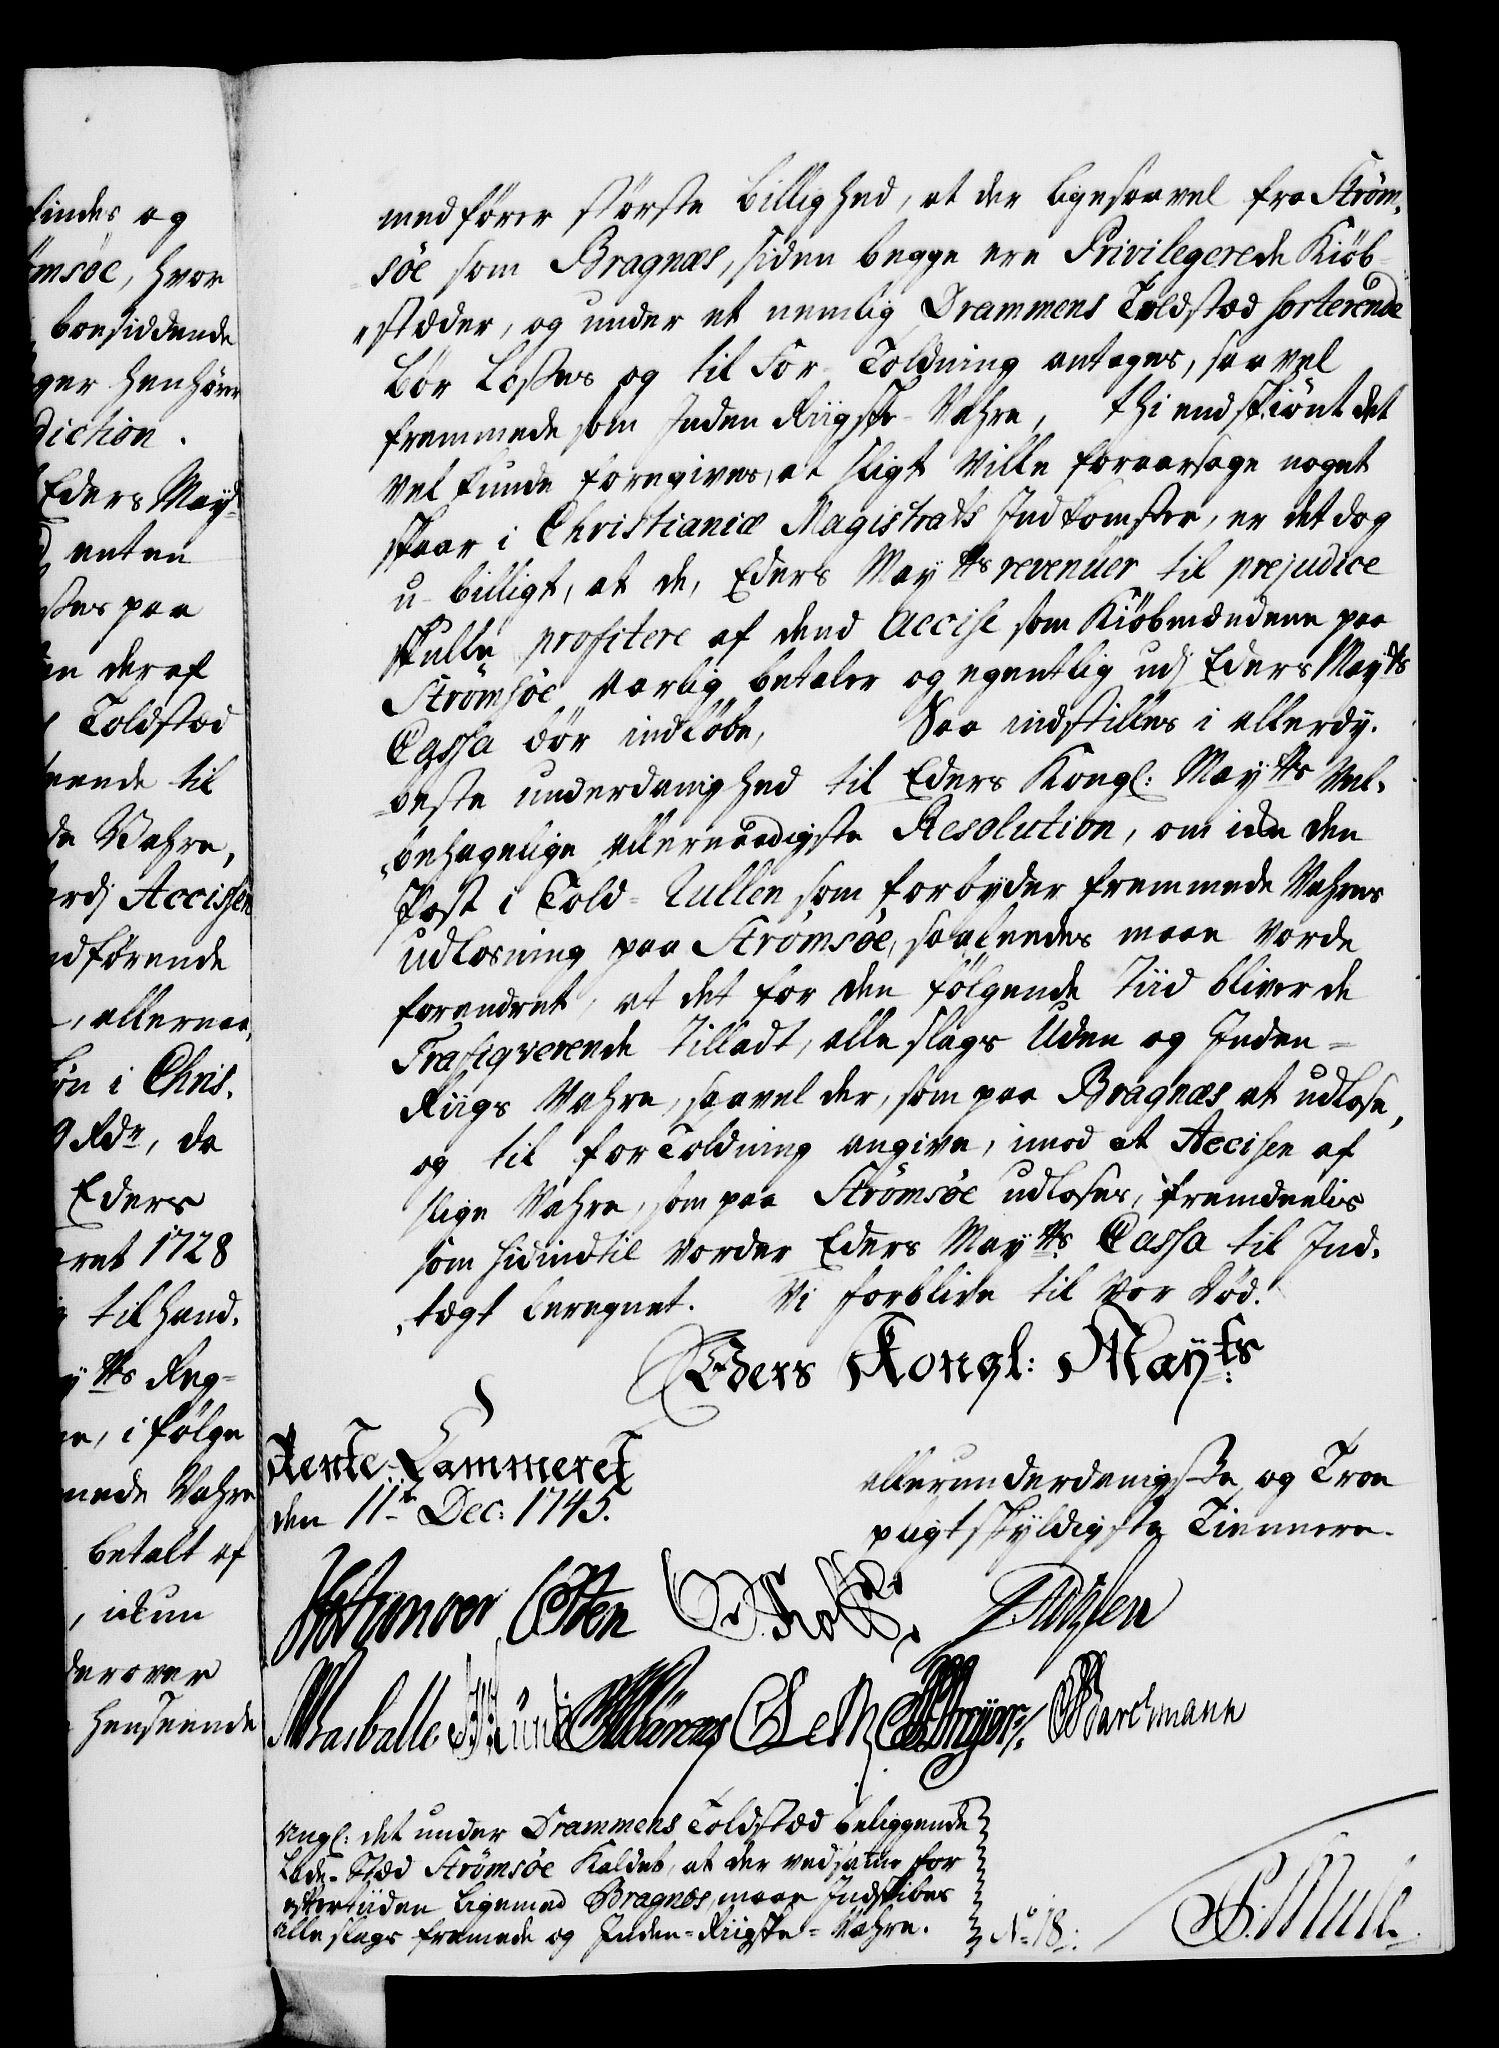 findes og
ömsöe, hvor
boesiddende
ger henhörer
diction.
Eders May
enten
stes paa
en deraf
Toldsted
ende til
de Vahre,
ardj Accissen
udförende
, allernaa,
ön i Chris.
9 Rdr, da
Eders
aret 1728
til hand.
y tts Reg=
e, i fölge
mede Vahre
betalt af
derover
henseende
medförer störste billighed, at der ligesaavel fra Ström,
söe som Bragnæs, siden begge ere Privilegerede Kiöb-
stæder, og under et nemlig Drammens Toldsted sorterende
bör Losses og til For-Toldning antages, saavel
fremmede som Inden Riigske-Vahre, thi endskiönt det
vel kunde foregives, at sligt Ville foraarsage noget
skaar i Christianiæ Magistrats Indkomster, er det dog
u-billigt, at de, Eders Maytts revenüer til prejudice
skulle profitere af dend Accise som Kiöbmændene paa
Strömsöe aarlig betaler og egentlig udj Eders Maytts
Cassa bör indlöbe, Saa indstilles i allerdy.
beste underdanighed til Eders Kongl: Maytts Vel-
behagelige allernaadigste Resolution, om icke den
Post i Told-Rullen som forbyder fremmede Vahres
udlosning paa Strömsöe, saaledes maae vorde
forandret, at det for den fölgende Tiid bliver de
Trafiqverende tilladt, alle slags Uden og Inden=
Riigs Vahre, saavel der, som paa Bragnæs at udlose,
og til forToldning angive, imod at Accisen af
slige Vahre, som paa Strömsöe udloses, fremdeelis
som hidindtil vorder Eders Maytts Cassa til Ind-
tægt beregnet. Vi forblive til vor Död.
Eders Kongl: Mayts:
Rente-Cammeret
den 11te Dec: 1745.
allerunderdanigste og Troe
pligtskyldigste Tiennere.
Holst
Basballe
Bartmann
Angl: det under Drammens Toldsted beliggende
Lade-Sted Strömsöe Kaldet, at der vedsamme for
eftertiiden ligemed Bragnæs, maae Indskibes
alle slags fremede og Inden=Riigske=Vahre.
No 18: